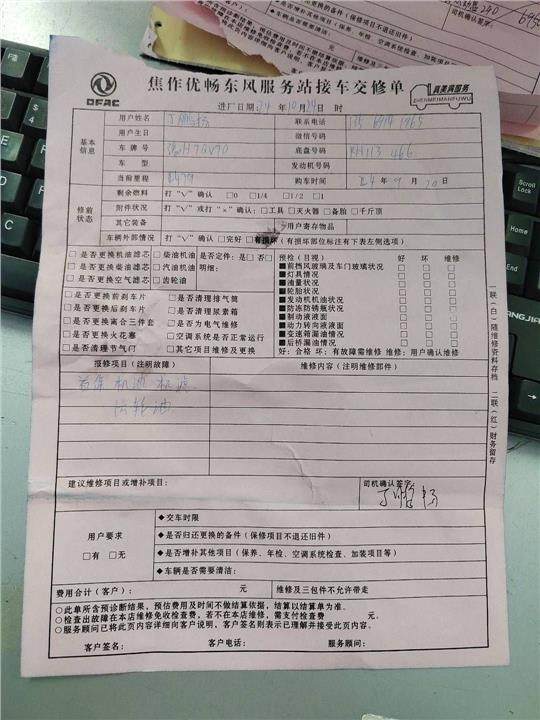 焦作优畅东风服务站接车交修单
DFAC
真美风服务
ZHENMEIMANFUWU
进厂日期:24 年 10 月 24 日 时
基本信息
用户姓名 丁鹏杨 联系电话
用户生日 微信号码
车牌号 底盘号码 RH113 466
车型 发动机号码
当前里程 购车时间 24 年 9 月 20 日
修前状态
剩余燃料 打"√"确认 □0 □1/4 □1/2 □1
附件状况 打"√"或打"×"确认:□工具 □灭火器 □备胎 □千斤顶
其它装备 □用户寄存物品
车辆外部情况 打"√"确认 □完好 □有损坏(有损坏部位标注有下表左侧选项)
□是否更换机油滤芯 □柴油机油 是否定件:是□否□
□是否更换柴油滤芯 □汽油机油 明细:
□是否更换空气滤芯 □齿轮油
□是否更换前刹车片 □是否清理排气筒
□是否更换后刹车片 □是否清理尿素箱
□是否更换离合三件套 □是否为电气维修
□是否更换火花塞 □空调系统是否正常运行
□是否清理节气门 □其它项目维修及更换
预检(目视) 好 坏 维修
■前挡风玻璃及车门玻璃状况 □ □ □
■灯具情况 □ □ □
■油量状况 □ □ □
■轮胎状况 □ □ □
■发动机机油状况 □ □ □
■防冻防锈瓶状况 □ □ □
■制动液液面 □ □ □
■动力转向液液面 □ □ □
■变速箱漏油情况 □ □ □
■后桥漏油情况 □ □ □
好:合格 坏:有故障需维修 维修:用户确认维修
报修项目(注明故障) 维修内容(注明维修部件)
首保 机油 机滤
齿轮油
建议维修项目或增补项目: 司机确认签字:
丁鹏杨
用户要求
□有 □无
◆交车时限
◆是否归还更换的备件(保修项目不退还旧件)
◆是否增补其他项目(保养、年检、空调系统检查、加装项目等)
◆车辆是否需要清洁:
费用合计(客户): 元 维修及三包件不允许带走
○此单所含预诊断结果,预估费用及时间不做结算依据,结算以结算单为准。
○检查出故障在本店维修免收检查费,若不在本店维修,需支付检查费 元。
○服务顾问已将此页内容详细向客户说明,客户签名则表示已理解并接受此页内容。
客户签名: 客户电话: 服务顾问:
一联(白)随维修资料存档 二联(红)财务留存
司机确认签字:
Scroll Lock